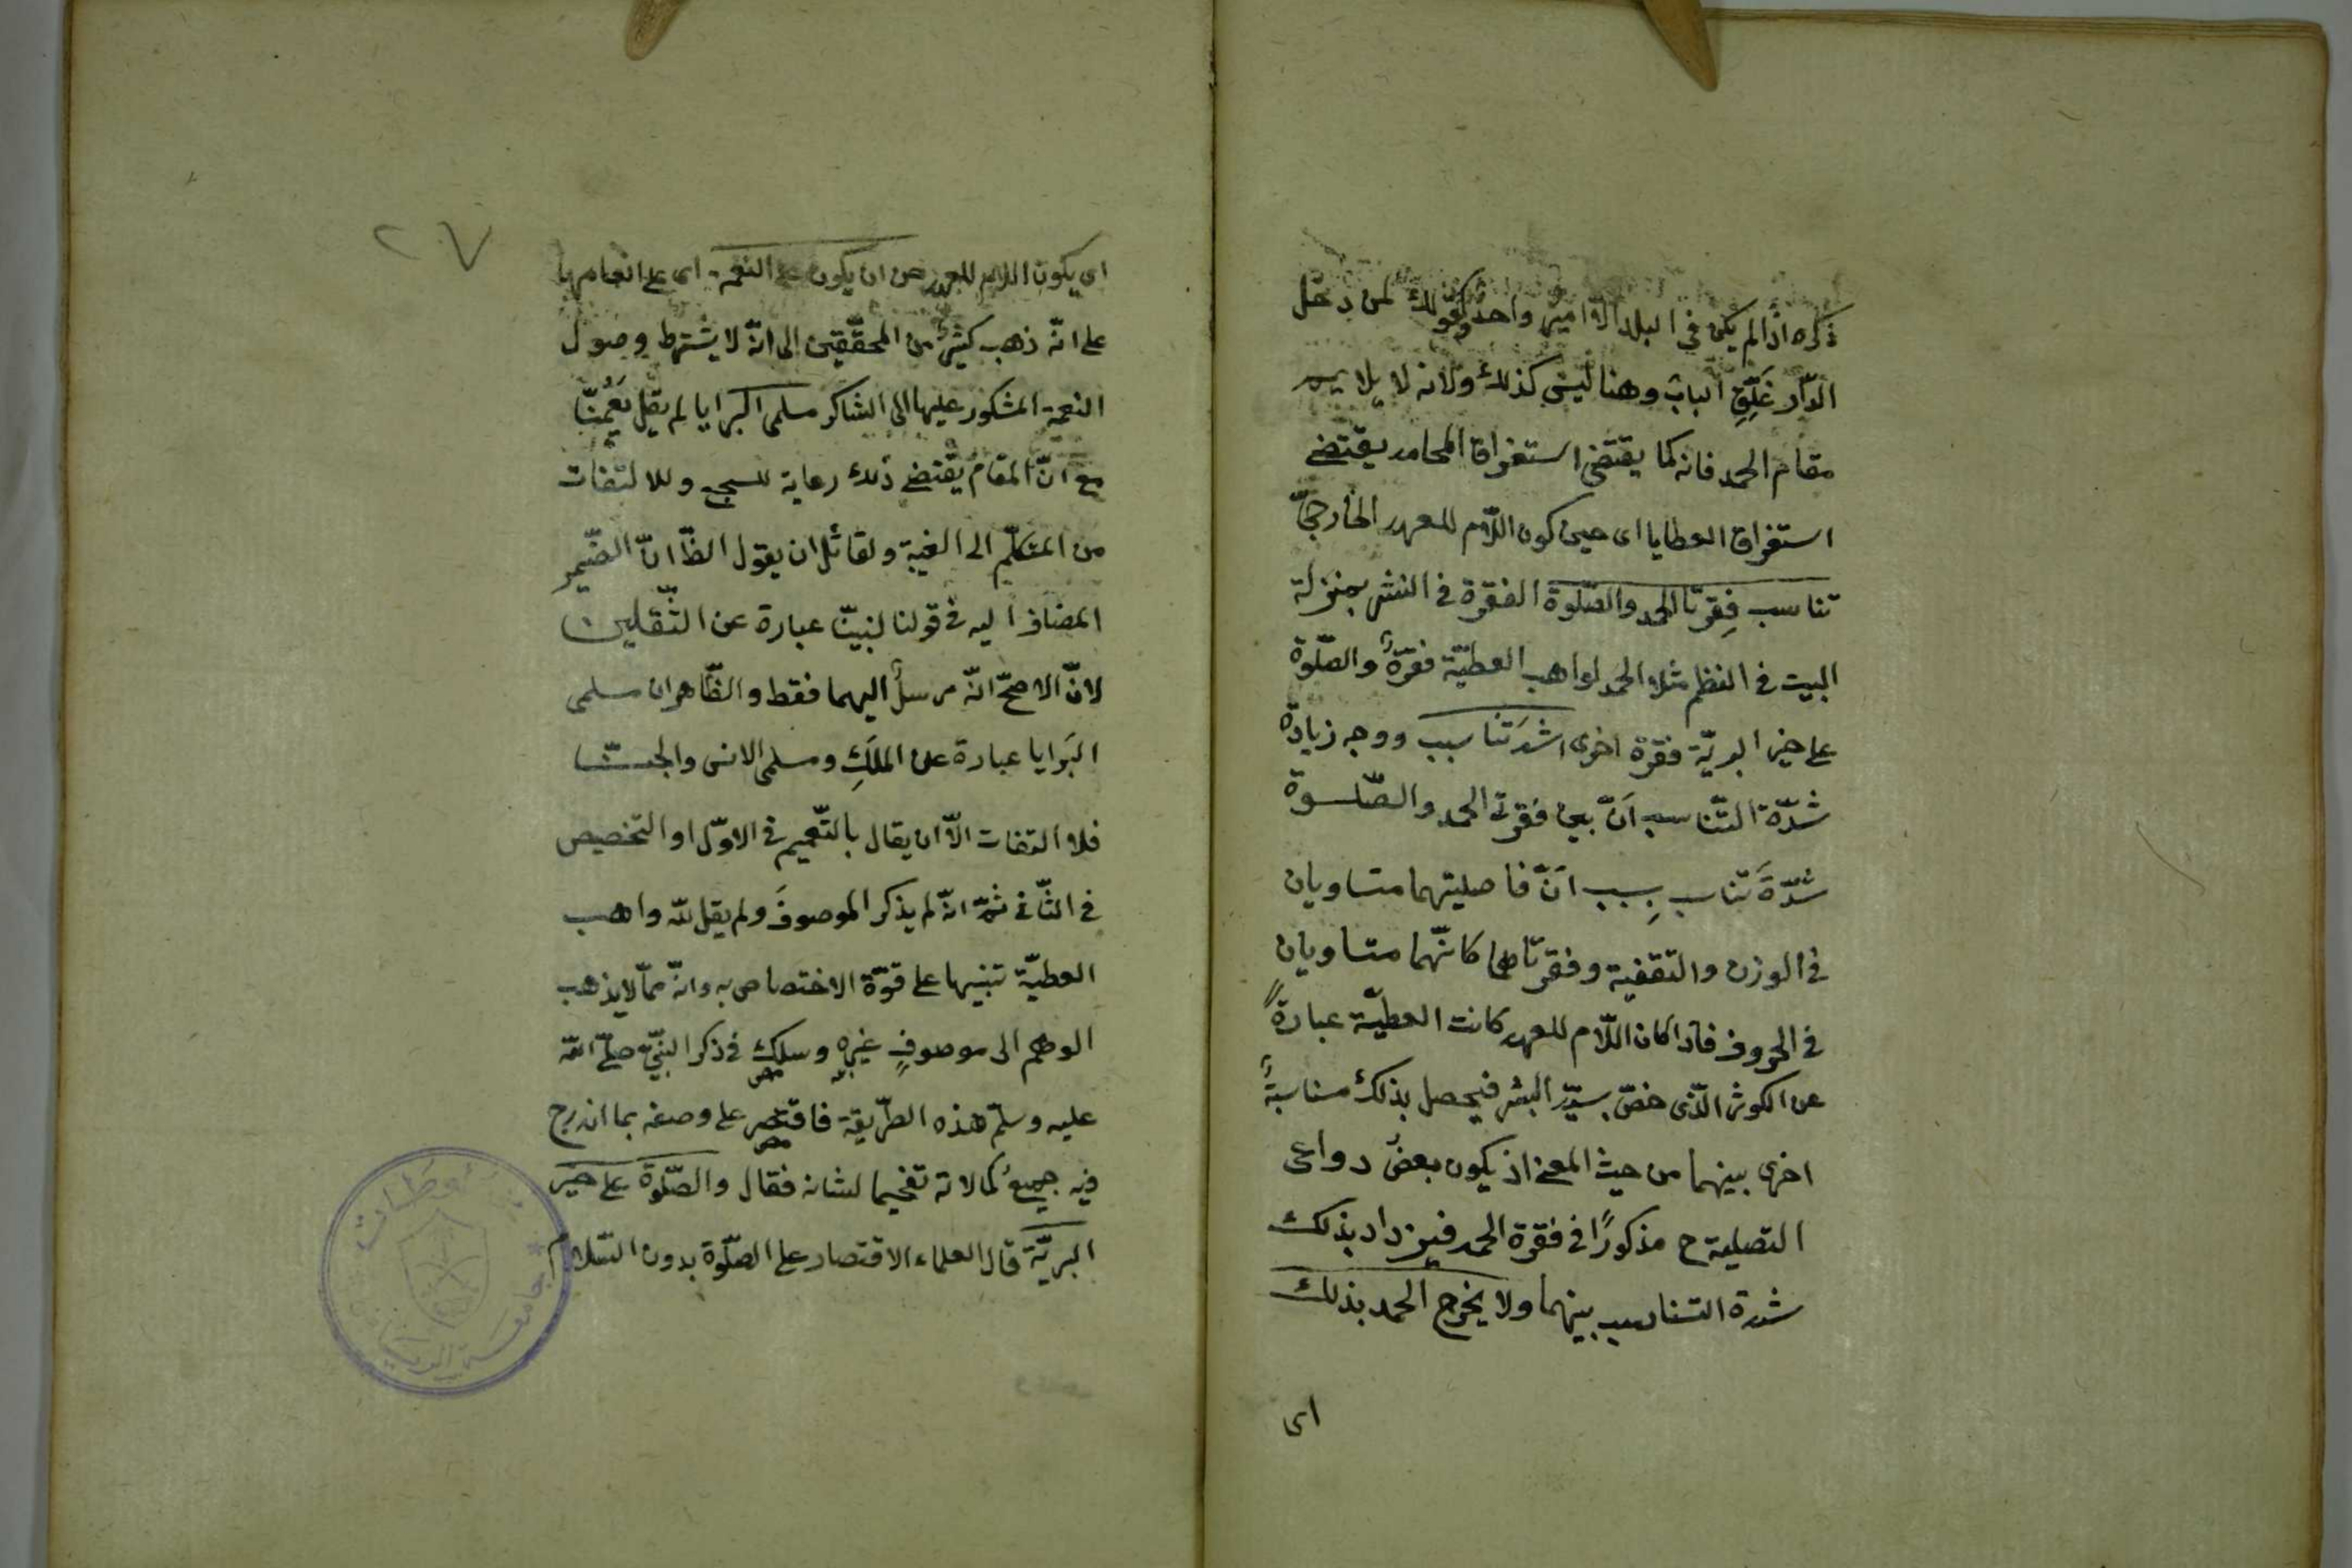 ذكره اذا لم يكن في البلد الا امير واحد وكقولك لمن دخل
الدّار غَلِّقِ الباب وهنا ليس كذلك ولانه لا يلايم
مقام الحمد فانه كما يقتضى استغراق المحامد يقتضے
استغراق العطايا اى حين كون اللّام للعهد الخارجىّ
تناسب فِقرتا الحمد والصّلوة الفقرة فى النثر بمنزلة
البيت فى النظم مثلا الحمد لواهب العطيّة فقرةٌ والصّلوة
على خير البريّة فقرة اخرى اشدّ تناسب ووجه زيادة
شدّة التّناسب انّ بين فقرتى الحمد والصّلوة
شدّةَ تناسب بسبب انّ فاصليتهما متساويان
فى الوزن والتقفية وفقرتاهما كانّهما متساويان
فى الحروف فاذا كان اللّام للعهد كانت العطيّة عبارةً
عن الكوثر الّذى خصّ بسيّد البشر فيحصل بذلك مناسبةٌ
اخرى بينهما من حيث المعنى اذ يكون بعض دواعى
التصلية ح مذكورًا فى فقرة الحمد فيزداد بذلك
شدة التناسب بينهما ولا يخرج الحمد بذلك
اى
٢٧
اى بكون اللام للعهد من ان يكون على النعمة اى على انعام بها
على انّه ذهب كثيرٌ من المحقّقين الى انّه لا يشترط وصول
النعمة المشكور عليها الى الشاكر سلمى البرايا لم يقل نَعُمنّا
مع انّ المقام يقتضے ذلك رعاية للسجع وللالتفات
من المتكلّم الى الغيبة ولقائل ان يقول الظّ انّ الضّمير
المضاف اليه فى قولنا لنبيّنا عبارة عن الثّقلين
لانّ الاصحّ انّه مرسلٌ اليهما فقط والظّاهر ان سلمى
البَرايا عبارة عن المَلَكِ وسلمى الانس والجنّ
فلا التفات الاّ ان يقال بالتّعميم فى الاوّل او التخصيص
فى الثّانى ثمّ انّه لم يذكر الموصوفَ ولم يقل لله واهب
العطيّة تنبيها على قوّة الاختصاص به وانّه ممّا لا يذهب
الوهم الى موصوفٍ غيره وسلك فى ذكر النبىّ صلّى الله
عليه وسلّم هذه الطّريقة فاقتصر على وصفه بما اندرج
فيه جميعُ كمالاته تفخيما لشانه فقال والصّلوة على خير
البريّة قال العلماء الاقتصار على الصّلوة بدون السّلام
جامعة الرياض